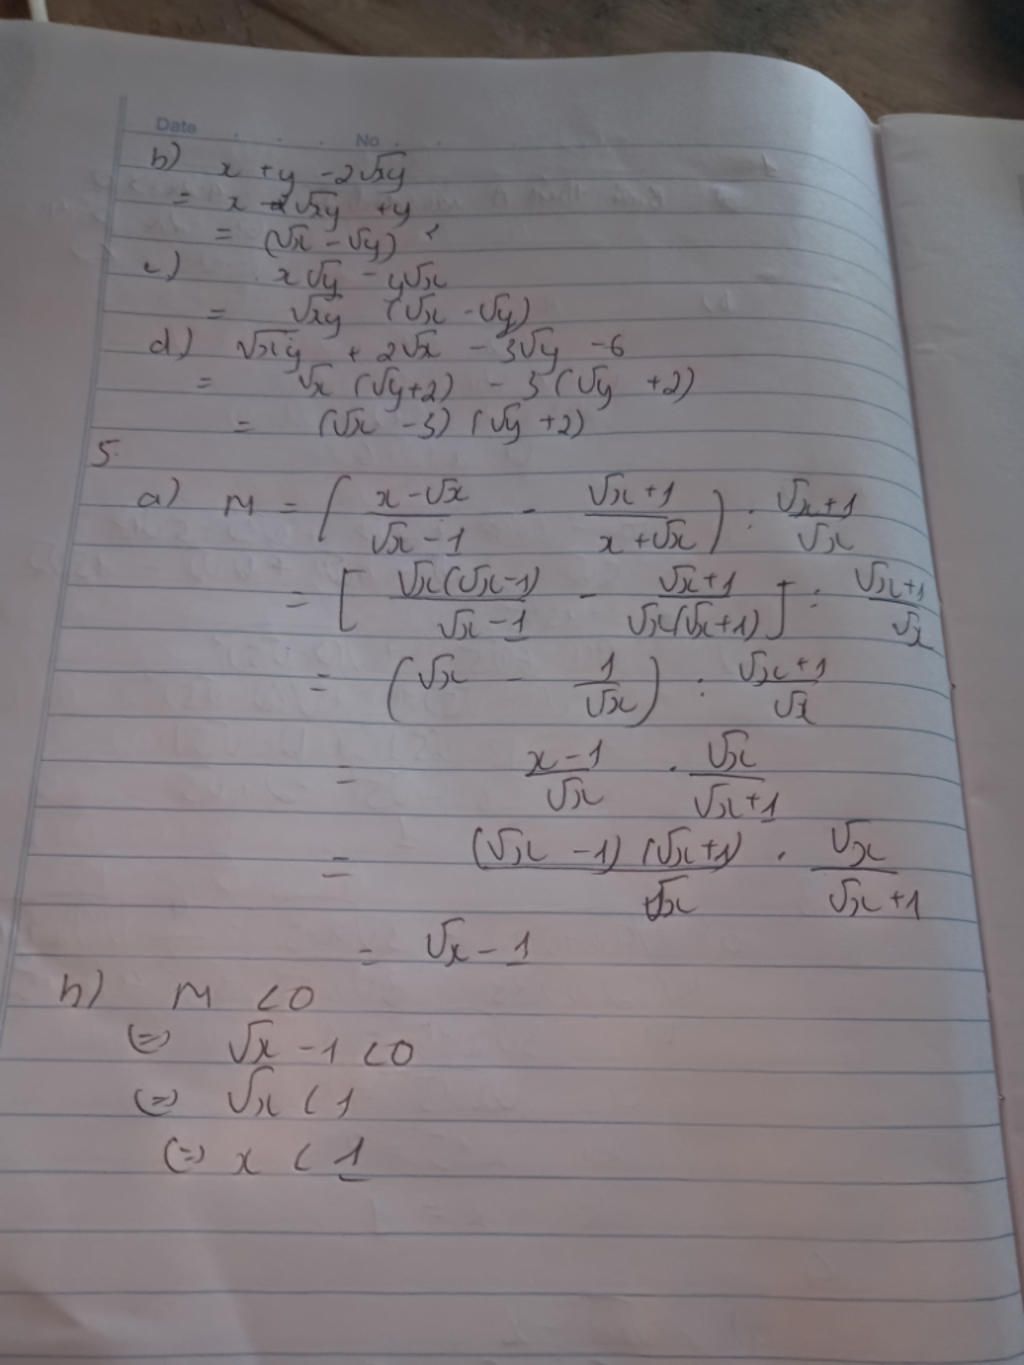 Date . . . No . .
b) x + y - 2√xy
= x - 2√xy + y
= (√x - √y)²
c) x√y - y√x
= √xy (√x - √y)
d) √xy + 2√x - 3√y - 6
= √x (√y+2) - 3 (√y + 2)
= (√x - 3) (√y + 2)
5.
a) M = ( (x-√x)/(√x-1) - (√x+1)/(x+√x) ) : (√x+1)/√x
= [ √x(√x-1)/(√x-1) - (√x+1)/(√x(√x+1)) ] : (√x+1)/√x
= ( √x - 1/√x ) : (√x+1)/√x
= (x-1)/√x . √x/(√x+1)
= (√x-1)(√x+1)/√x . √x/(√x+1)
= √x - 1
b) M < 0
(=) √x - 1 < 0
(=) √x < 1
(=) x < 1